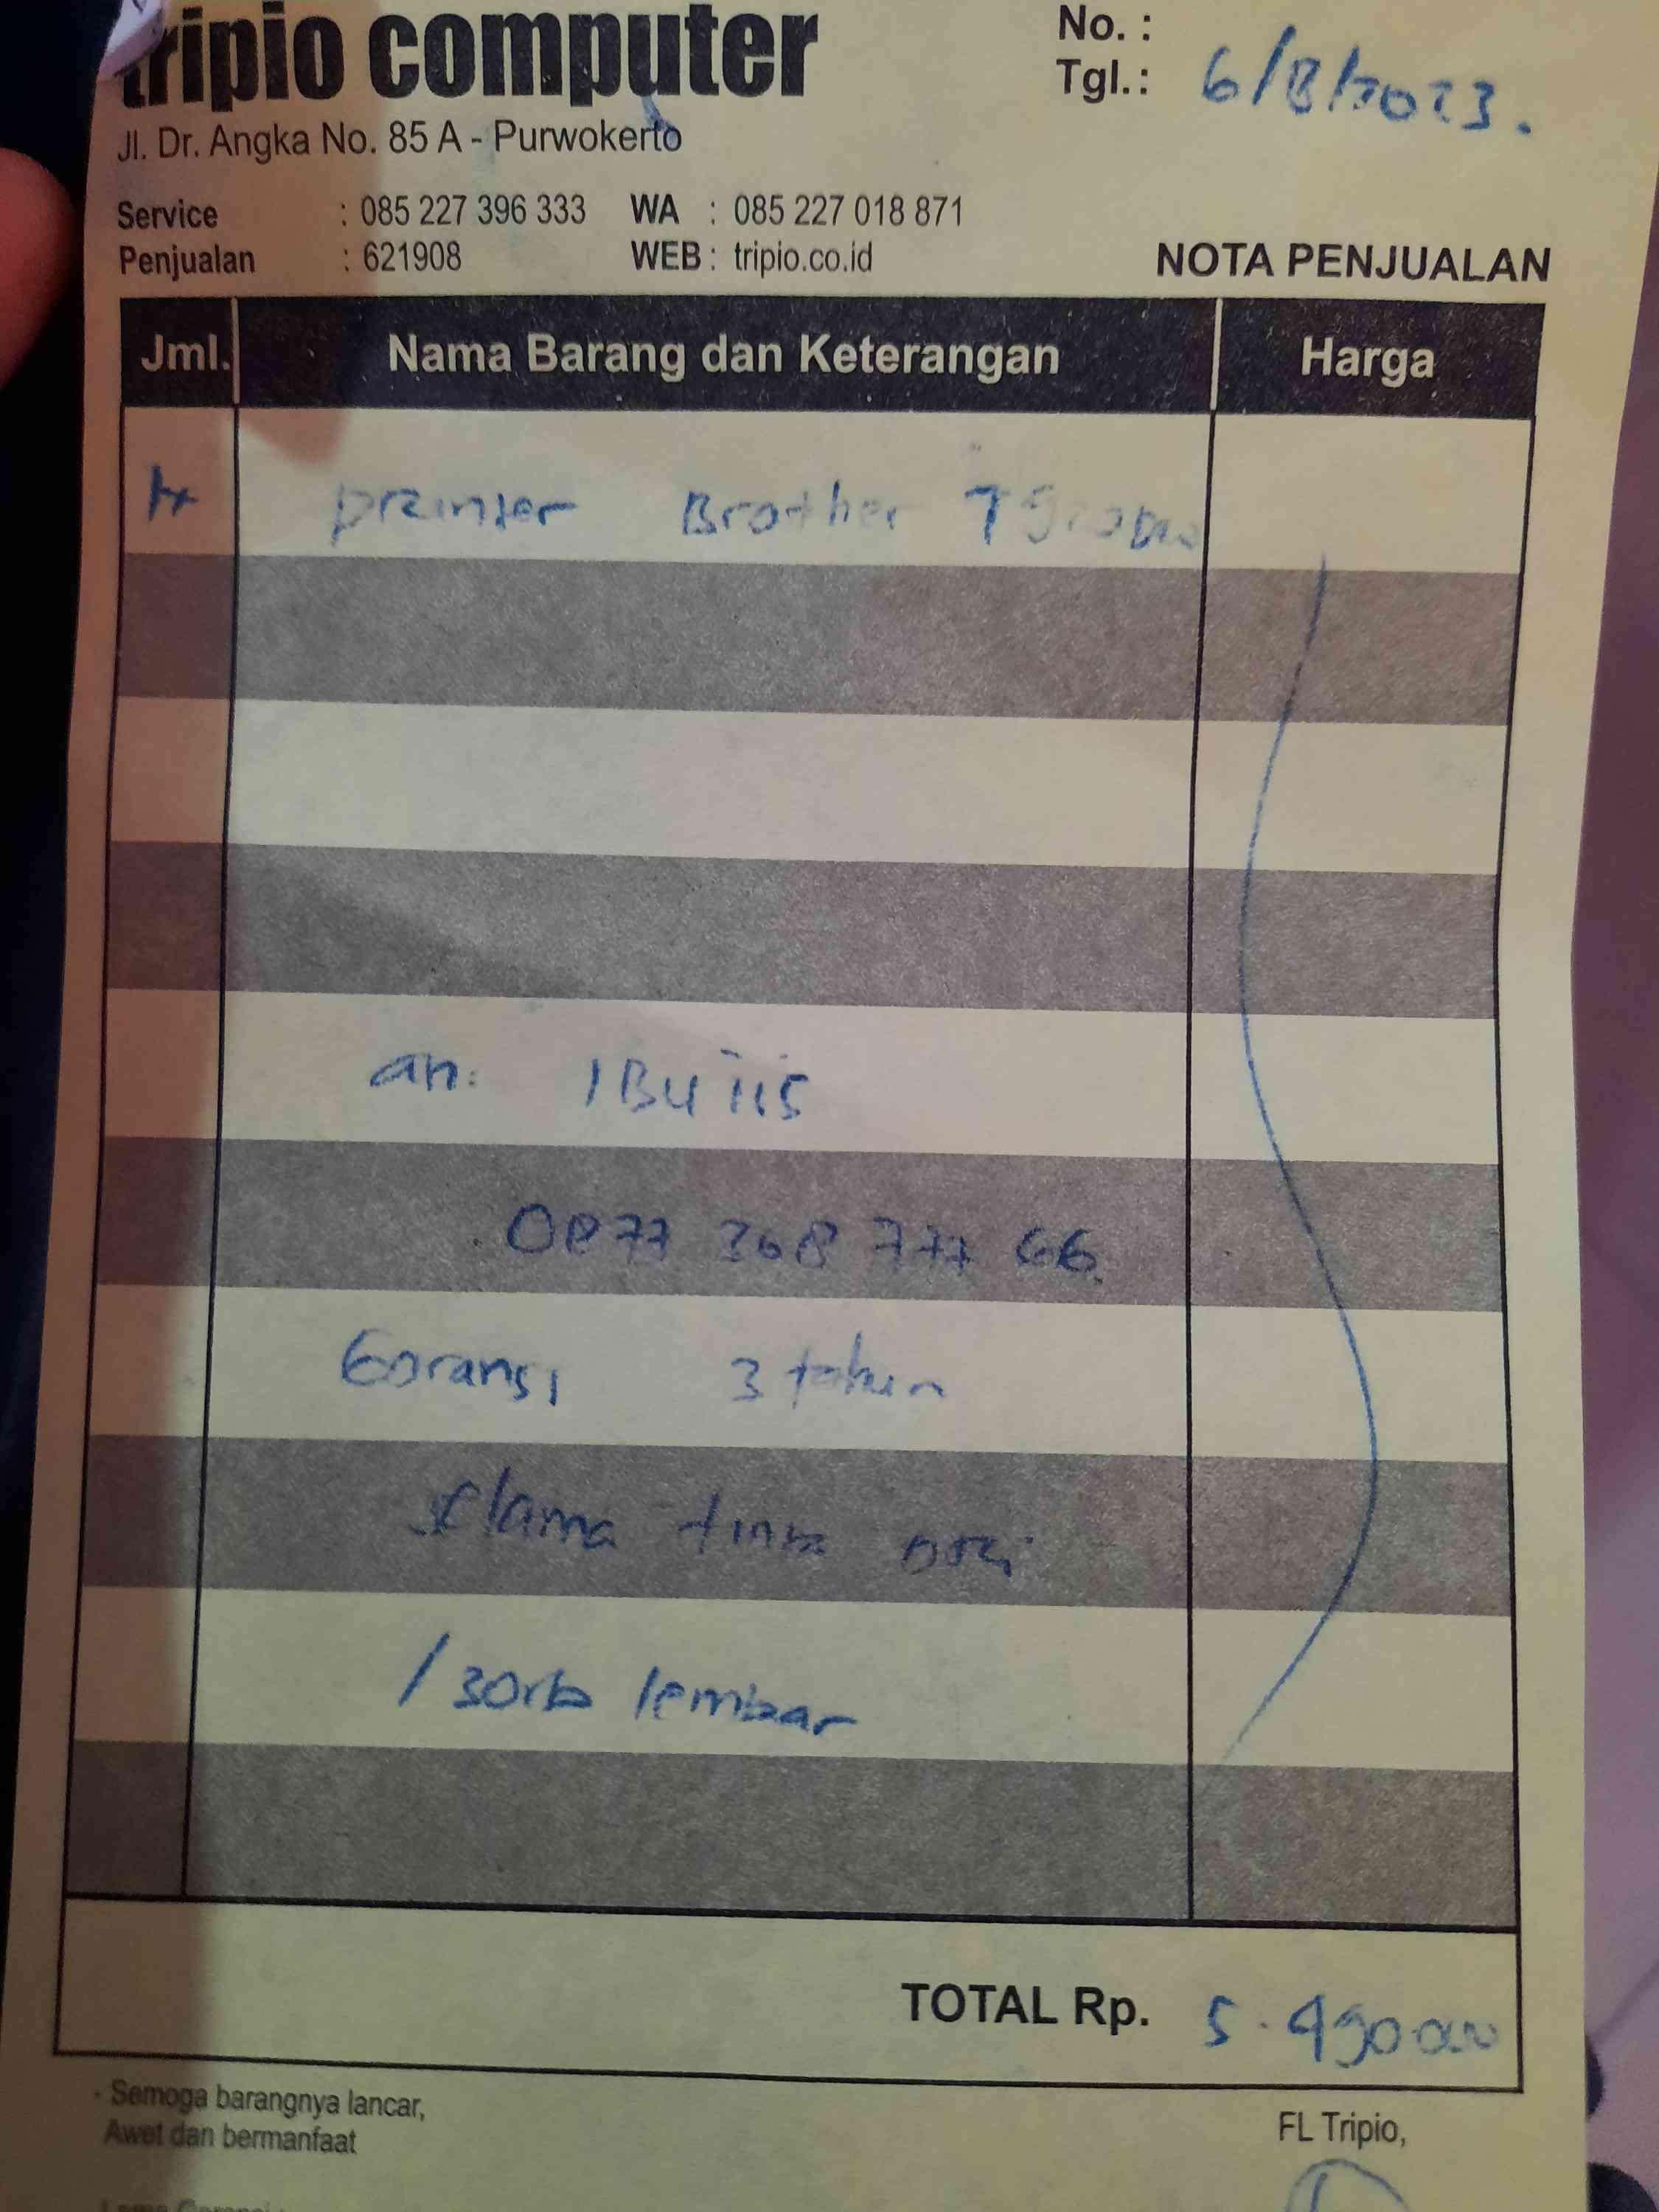 tripio computer
No. :
Tgl.: 6/8/2023.
Jl. Dr. Angka No. 85 A - Purwokerto
Service : 085 227 396 333 WA : 085 227 018 871
Penjualan : 621908 WEB : tripio.co.id
NOTA PENJUALAN
Jml. Nama Barang dan Keterangan Harga
Brother
an: IBU iis
0877 368 777 66
Garansi 3 tahun
selama tinta ori
/ 30rb lembar
TOTAL Rp. 5.490000
- Semoga barangnya lancar,
Awet dan bermanfaat
FL Tripio,